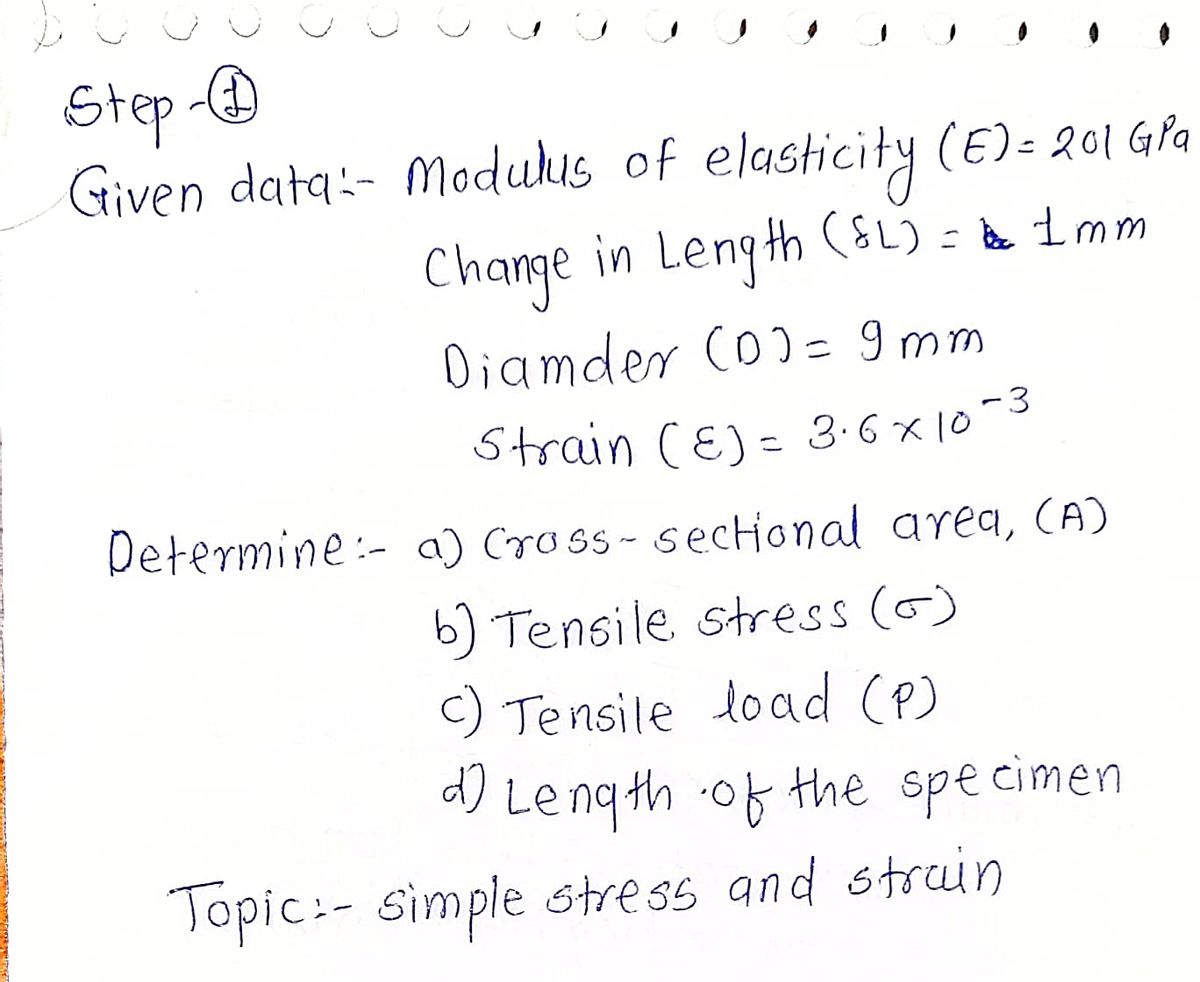 Step-①
Given data:- Modulus of elasticity (E) = 201 GPa
Change in Length (δL) = 1 mm
Diamder (D) = 9 mm
Strain (ε) = 3.6 × 10⁻³
Determine:- a) Cross-sectional area, (A)
b) Tensile stress (σ)
c) Tensile load (P)
d) Length of the specimen
Topic:- simple stress and strain